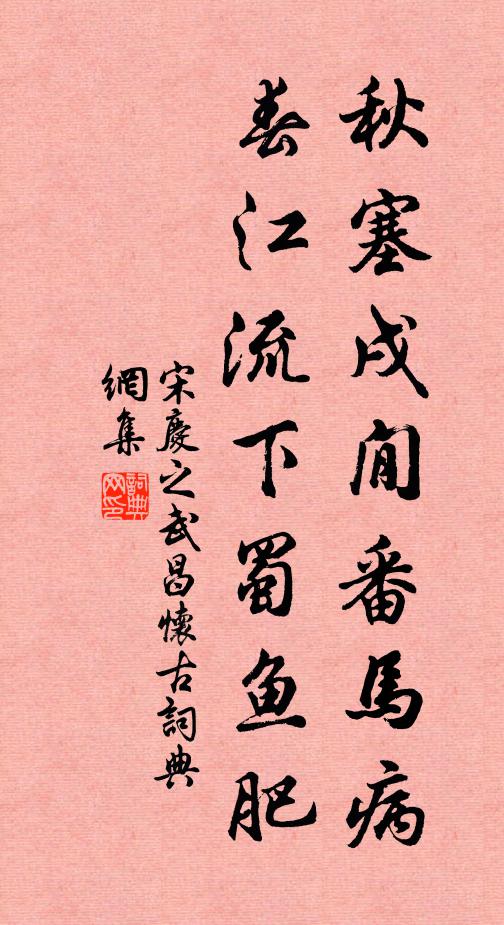 秋塞戍閒番馬病
春江流下蜀鱼肥
宋慶之武昌懷古詞典
網集
詞典
网印